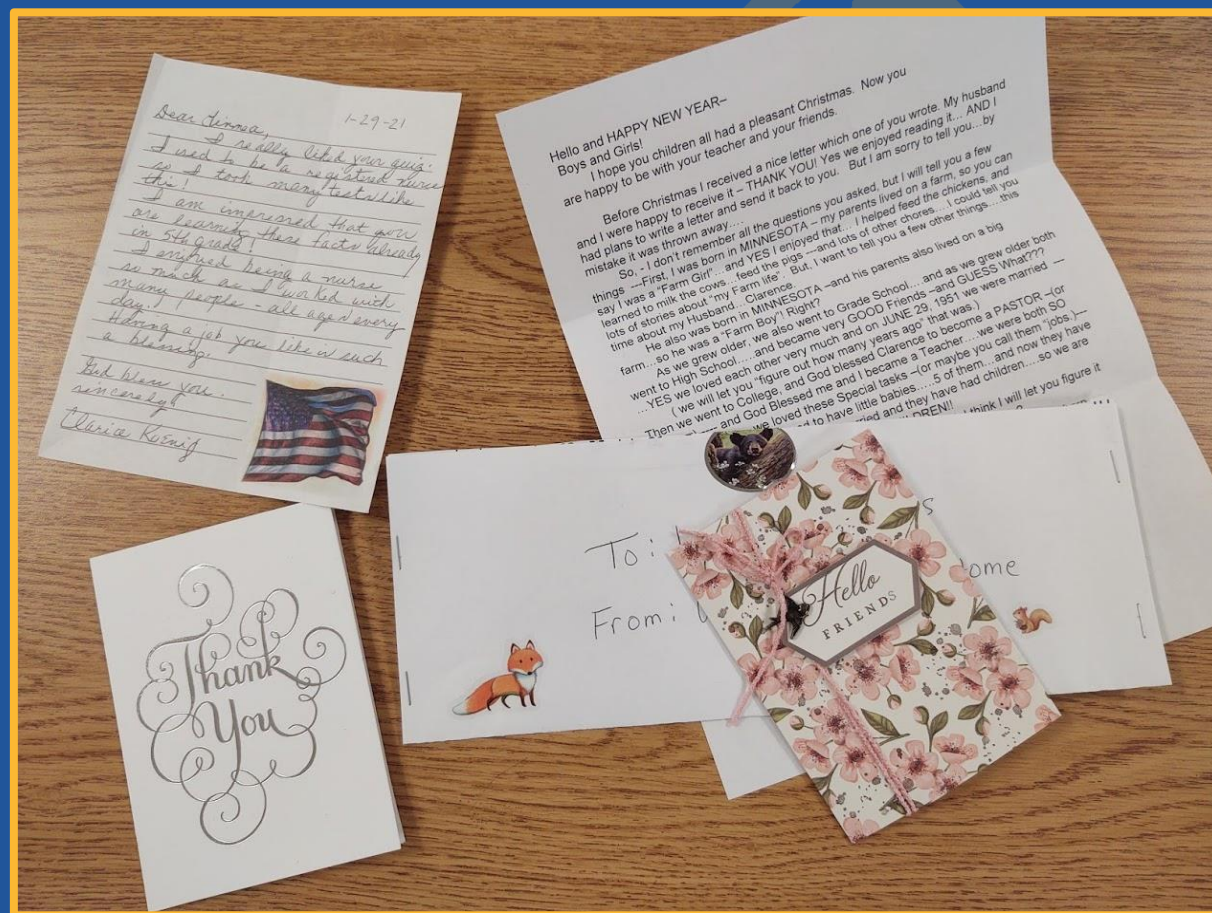 Dear Linnea, 1-29-21
I really liked your quiz.
I used to be a registered nurse
so I took many tests like
this!
I am impressed that you
are learning these facts already
in 5th grade!
I enjoyed being a nurse
so much as I worked with
many people - all ages every
day.
Having a job you like is such
a blessing.
God bless you.
sincerely,
Clarice Koenig
Hello and HAPPY NEW YEAR–
Boys and Girls!
I hope you children all had a pleasant Christmas. Now you
are happy to be with your teacher and your friends.
Before Christmas I received a nice letter which one of you wrote. My husband
and I were happy to receive it – THANK YOU! Yes we enjoyed reading it... AND I
had plans to write a letter and send it back to you. But I am sorry to tell you...by
mistake it was thrown away.....
So, - I don't remember all the questions you asked, but I will tell you a few
things ---First, I was born in MINNESOTA – my parents lived on a farm, so you can
say I was a "Farm Girl"...and YES I enjoyed that... I helped feed the chickens, and
learned to milk the cows...feed the pigs ---and lots of other chores....I could tell you
lots of stories about "my Farm life". But, I want to tell you a few other things....this
time about my Husband...Clarence.
He also was born in MINNESOTA –and his parents also lived on a big
farm...so he was a "Farm Boy"! Right?
As we grew older, we also went to Grade School....and as we grew older both
went to High School.....and became very GOOD Friends –and GUESS What???
...YES we loved each other very much and on JUNE 29, 1951 we were married —
( we will let you "figure out how many years ago" that was.)
Then we went to College, and God blessed Clarence to become a PASTOR –(or
and God Blessed me and I became a Teacher....we were both SO
we loved these Special tasks –(or maybe you call them "jobs.)–
to have little babies.....5 of them...and now they have
and they have had children....so we are
I think I will let you figure it
To:
From:
ome
Hello
FRIENDS
Thank
You